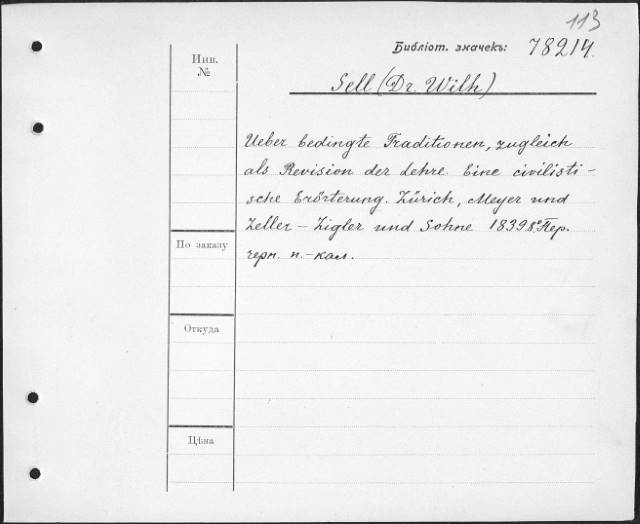 113
Библіот. значекъ: 78214.
Инв.
№
Sell (Dr. Wilh)
Ueber bedingte Traditionen, zugleich
als Revision der Lehre. Eine civilisti-
sche Erörterung. Zürich, Meyer und
Zeller – Zigler und Sohne 1839 8° Пер.
черн. п.-кал.
По заказу
Откуда
Цѣна